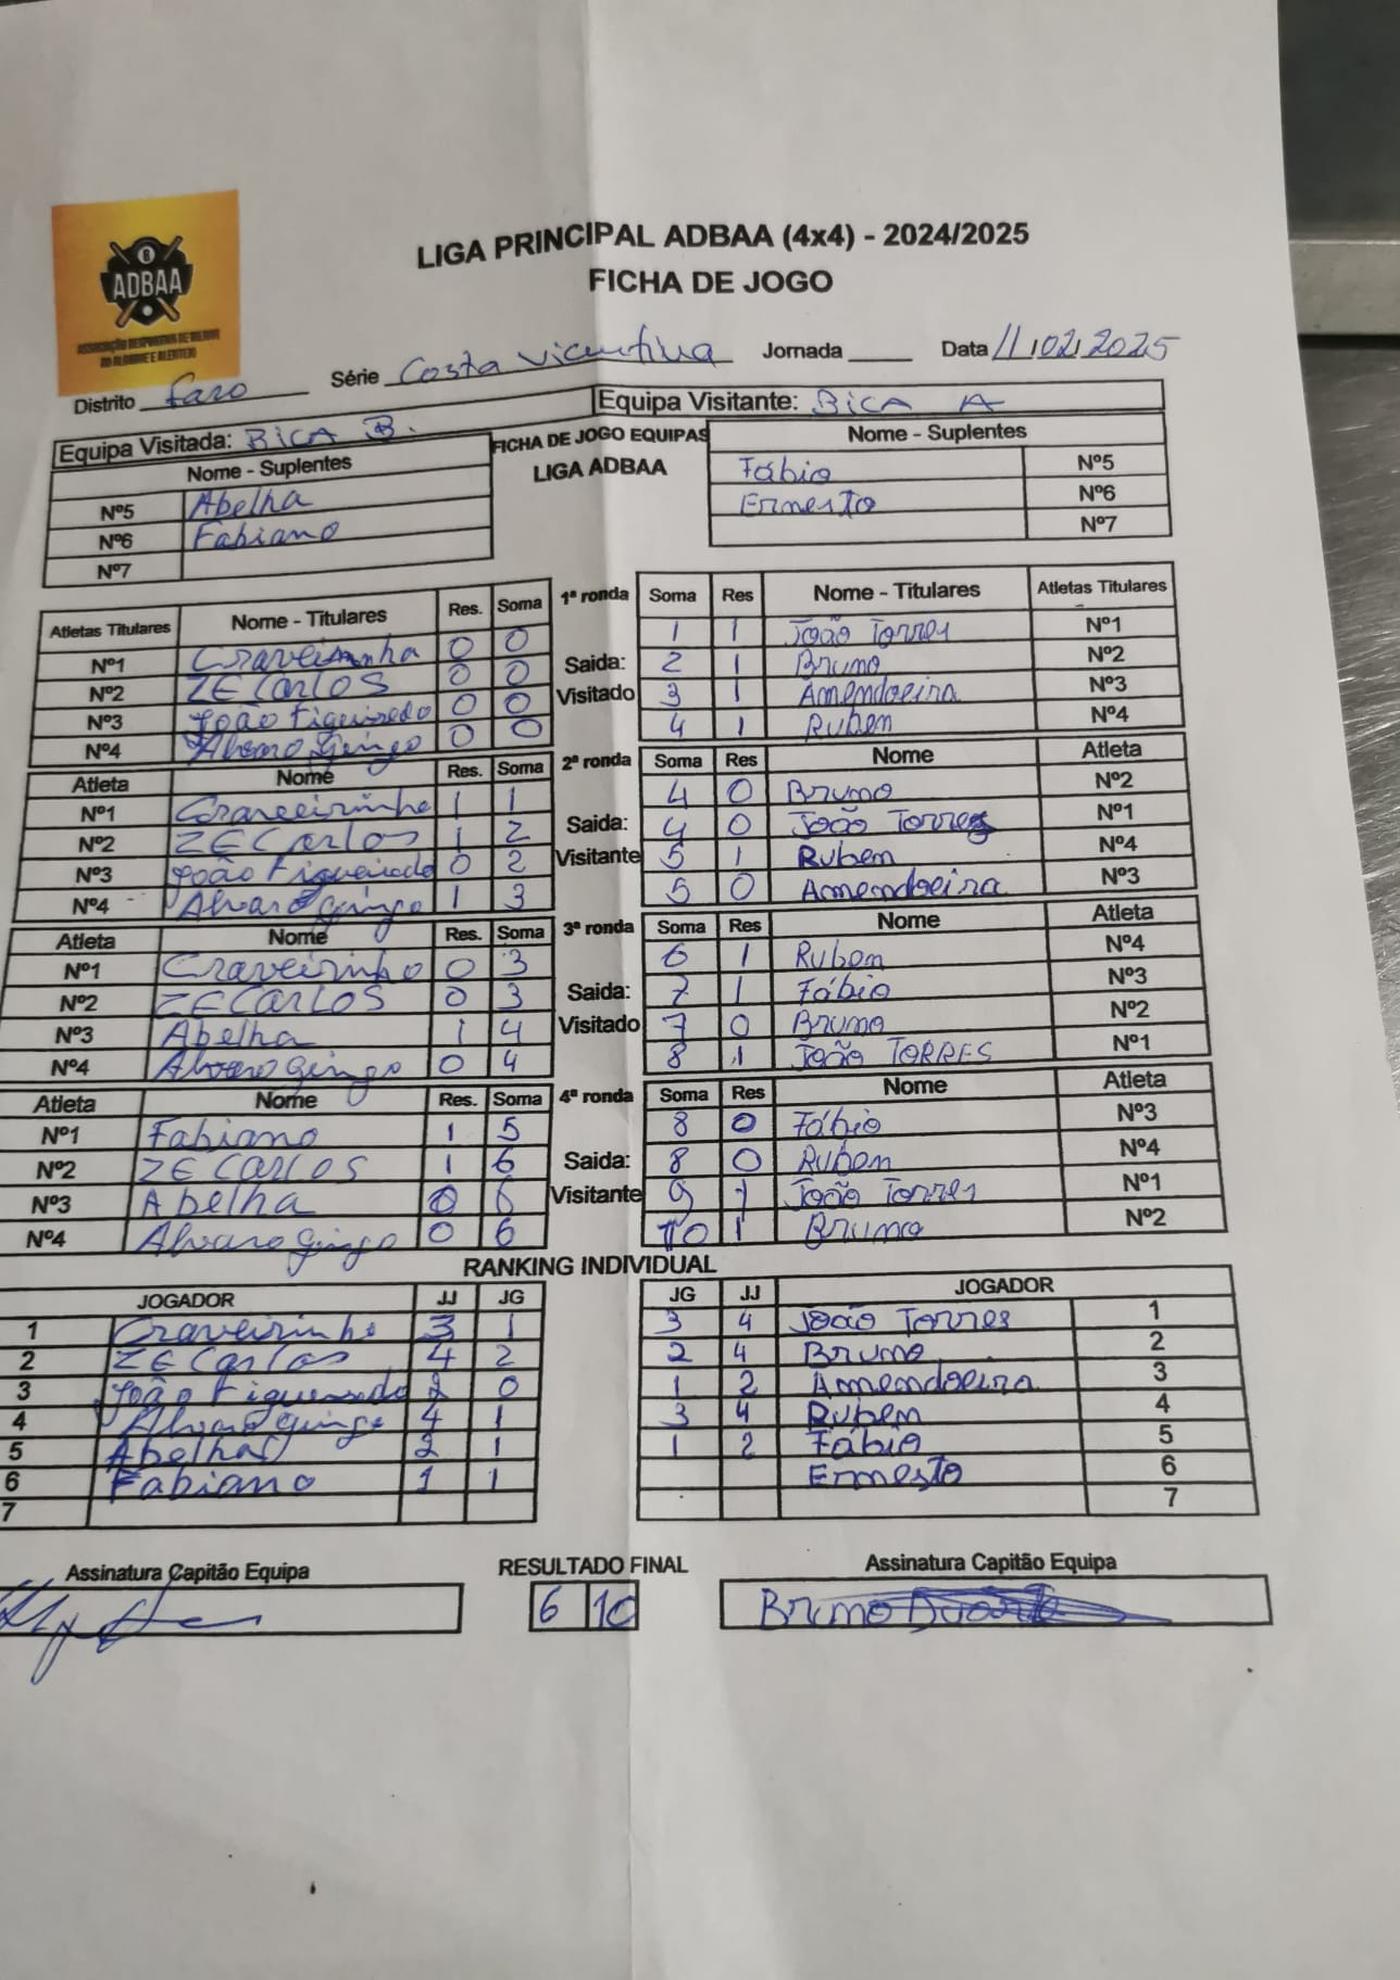 ADBAA
ASSOCIAÇÃO DESPORTIVA DE BILHAR
DO ALGARVE E ALENTEJO
LIGA PRINCIPAL ADBAA (4x4) - 2024/2025
FICHA DE JOGO
Distrito Faro Série Costa Vicentina Jornada ____ Data 11/02/2025
Equipa Visitada: BICA B. Equipa Visitante: BICA A
Nome - Suplentes FICHA DE JOGO EQUIPAS Nome - Suplentes
LIGA ADBAA
Nº5 Abelha Fábio Nº5
Nº6 Fabiano Ernesto Nº6
Nº7 Nº7
Atletas Titulares Nome - Titulares Res. Soma 1ª ronda Soma Res Nome - Titulares Atletas Titulares
Nº1 Craveirinha 0 0 1 1 João Torres Nº1
Nº2 ZE CARLOS 0 0 Saida: 2 1 Bruno Nº2
Nº3 João Figueiredo 0 0 Visitado 3 1 Amendoeira Nº3
Nº4 Alvaro Gingo 0 0 4 1 Ruben Nº4
Atleta Nome Res. Soma 2ª ronda Soma Res Nome Atleta
Nº1 Craveirinho 1 1 4 0 Bruno Nº2
Nº2 ZE Carlos 1 2 Saida: 4 0 João Torres Nº1
Nº3 João Figueiredo 0 2 Visitante 5 1 Ruben Nº4
Nº4 Alvaro Gingo 1 3 5 0 Amendoeira Nº3
Atleta Nome Res. Soma 3ª ronda Soma Res Nome Atleta
Nº1 Craveirinho 0 3 6 1 Ruben Nº4
Nº2 ZE CARLOS 0 3 Saida: 7 1 Fábio Nº3
Nº3 Abelha 1 4 Visitado 7 0 Bruno Nº2
Nº4 Alvaro Gingo 0 4 8 1 João TORRES Nº1
Atleta Nome Res. Soma 4ª ronda Soma Res Nome Atleta
Nº1 Fabiano 1 5 8 0 Fábio Nº3
Nº2 ZE CARLOS 1 6 Saida: 8 0 Ruben Nº4
Nº3 Abelha 0 6 Visitante 9 1 João Torres Nº1
Nº4 Alvaro Gingo 0 6 10 1 Bruno Nº2
RANKING INDIVIDUAL
JOGADOR JJ JG JG JJ JOGADOR
1 Craveirinho 3 1 3 4 João Torres 1
2 ZE Carlos 4 2 2 4 Bruno 2
3 João Figueiredo 2 0 1 2 Amendoeira 3
4 Alvaro Gingo 4 1 3 4 Ruben 4
5 Abelha 2 1 1 2 Fábio 5
6 Fabiano 1 1 Ernesto 6
7 7
Assinatura Capitão Equipa RESULTADO FINAL Assinatura Capitão Equipa
6 10 Bruno Duarte